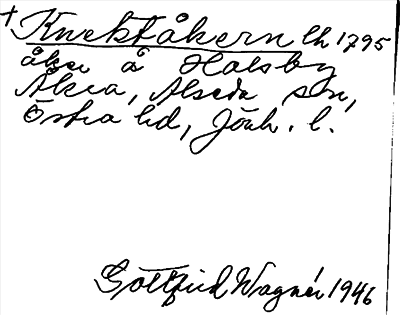 + Knektåkern lh 1795
åker å Holsby
Åkra, Alseda sn,
Östra hd, Jönk. l.
Gottfrid Wagnér 1946